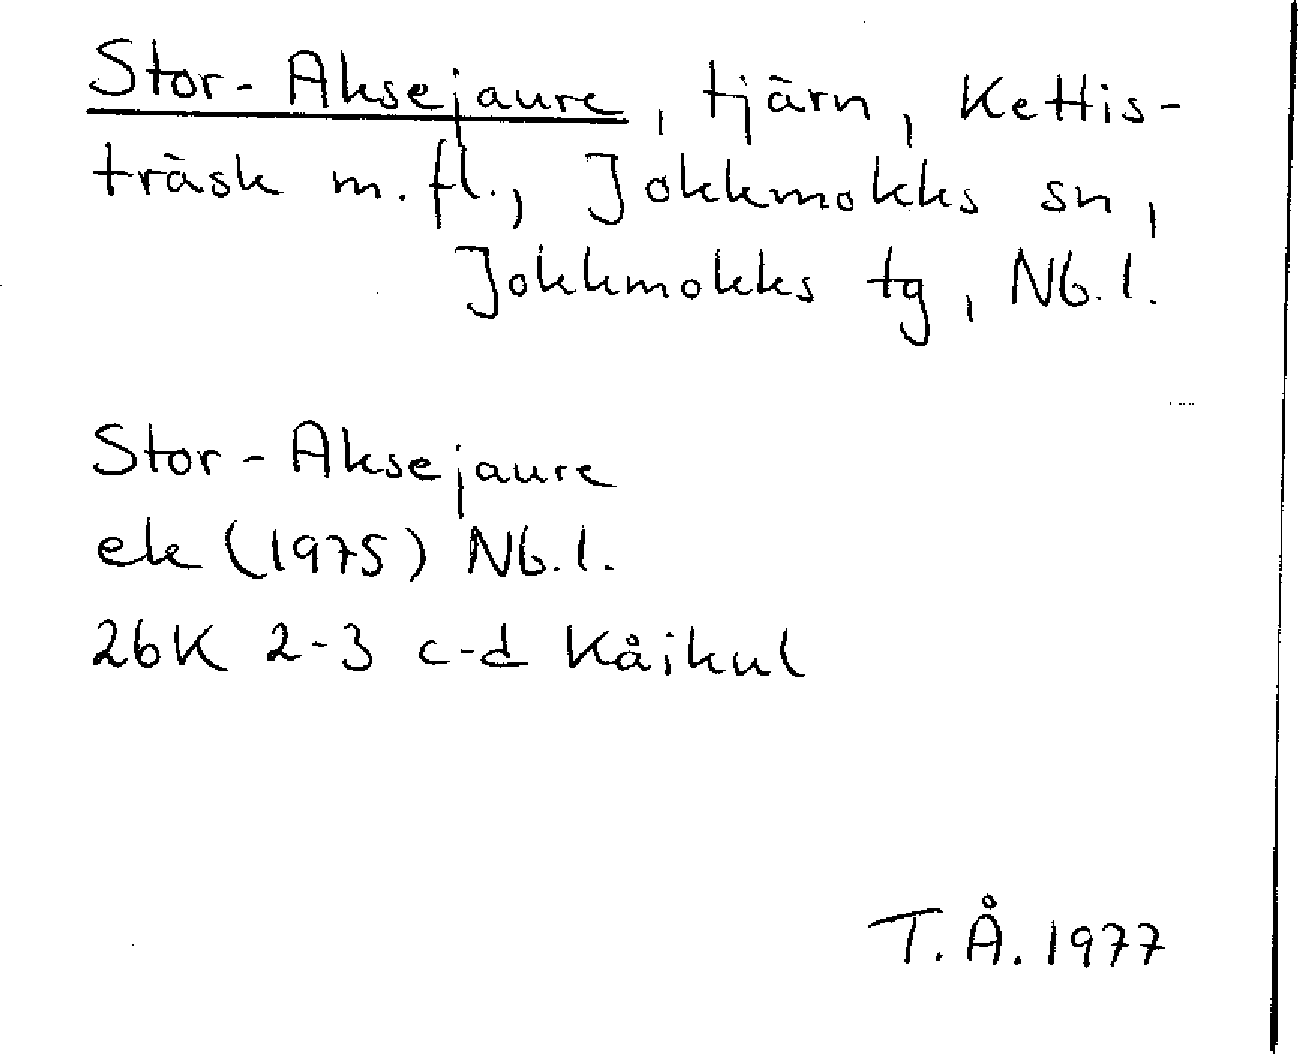 Stor-Aksejaure, tjärn, Kettis-
träsk m.fl., Jokkmokks sn,
Jokkmokks tg, Nb.l.
Stor-Aksejaure
ek (1975) Nb.l.
26K 2-3 c-d Kåikul
T.Å. 1977